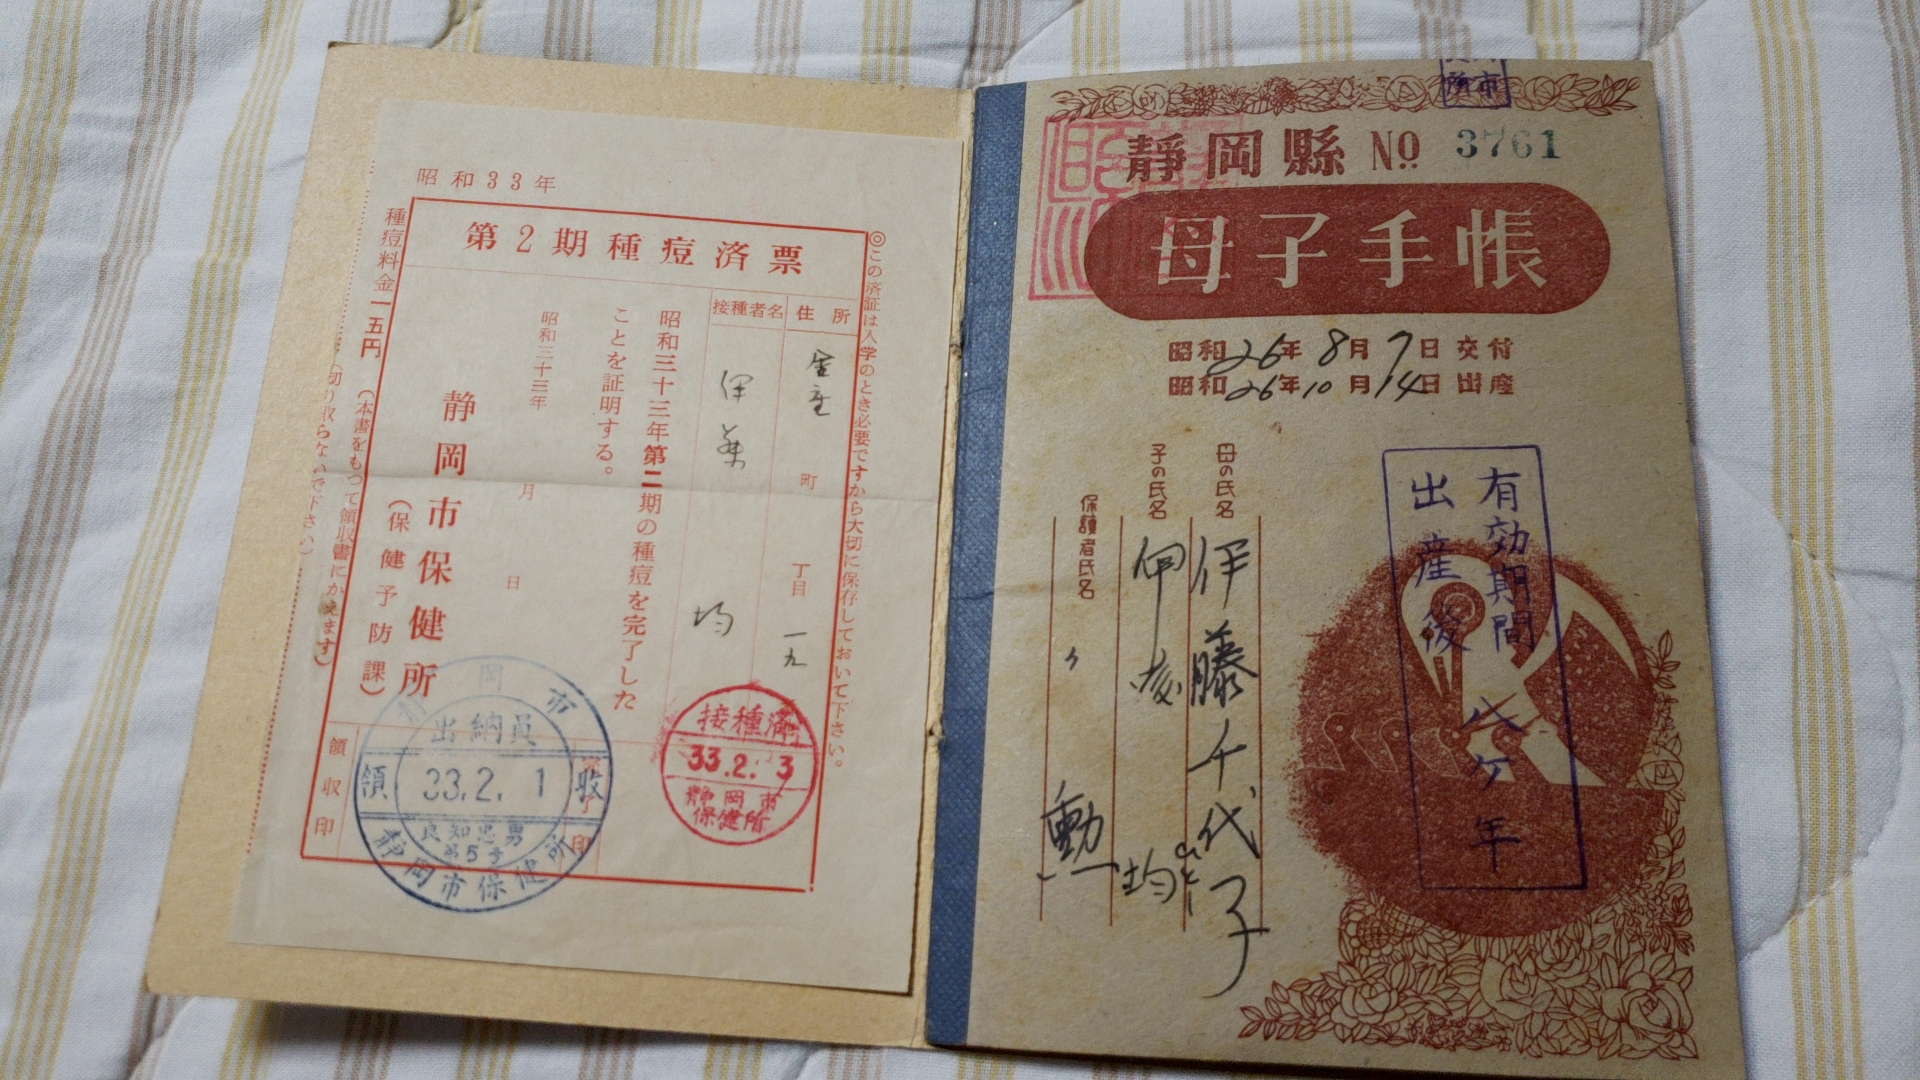 靜岡縣 No 3761
母子手帳
昭和26年8月7日交付
昭和26年10月14日出産
母の氏名 伊藤千代子
子の氏名 伊藤 均
保護者氏名 〃 勲
有効期間
出産後 八ケ年
昭和33年
第2期種痘済票
◎この済証は入学のとき必要ですから大切に保存しておいて下さい。
住所 町 丁目 一九
接種者名 伊藤 均
昭和三十三年第二期の種痘を完了した
ことを証明する。
昭和三十三年 月 日
静岡市保健所
(保健予防課)
領収印
種痘料金一五円 (本書をもつて領収書にかえます)
(切り取らないで下さい)
接種済
33.2.3
静岡市
保健所
静岡市
出納員
領 33.2.1 収
良知忠男
第5号
静岡市保健所